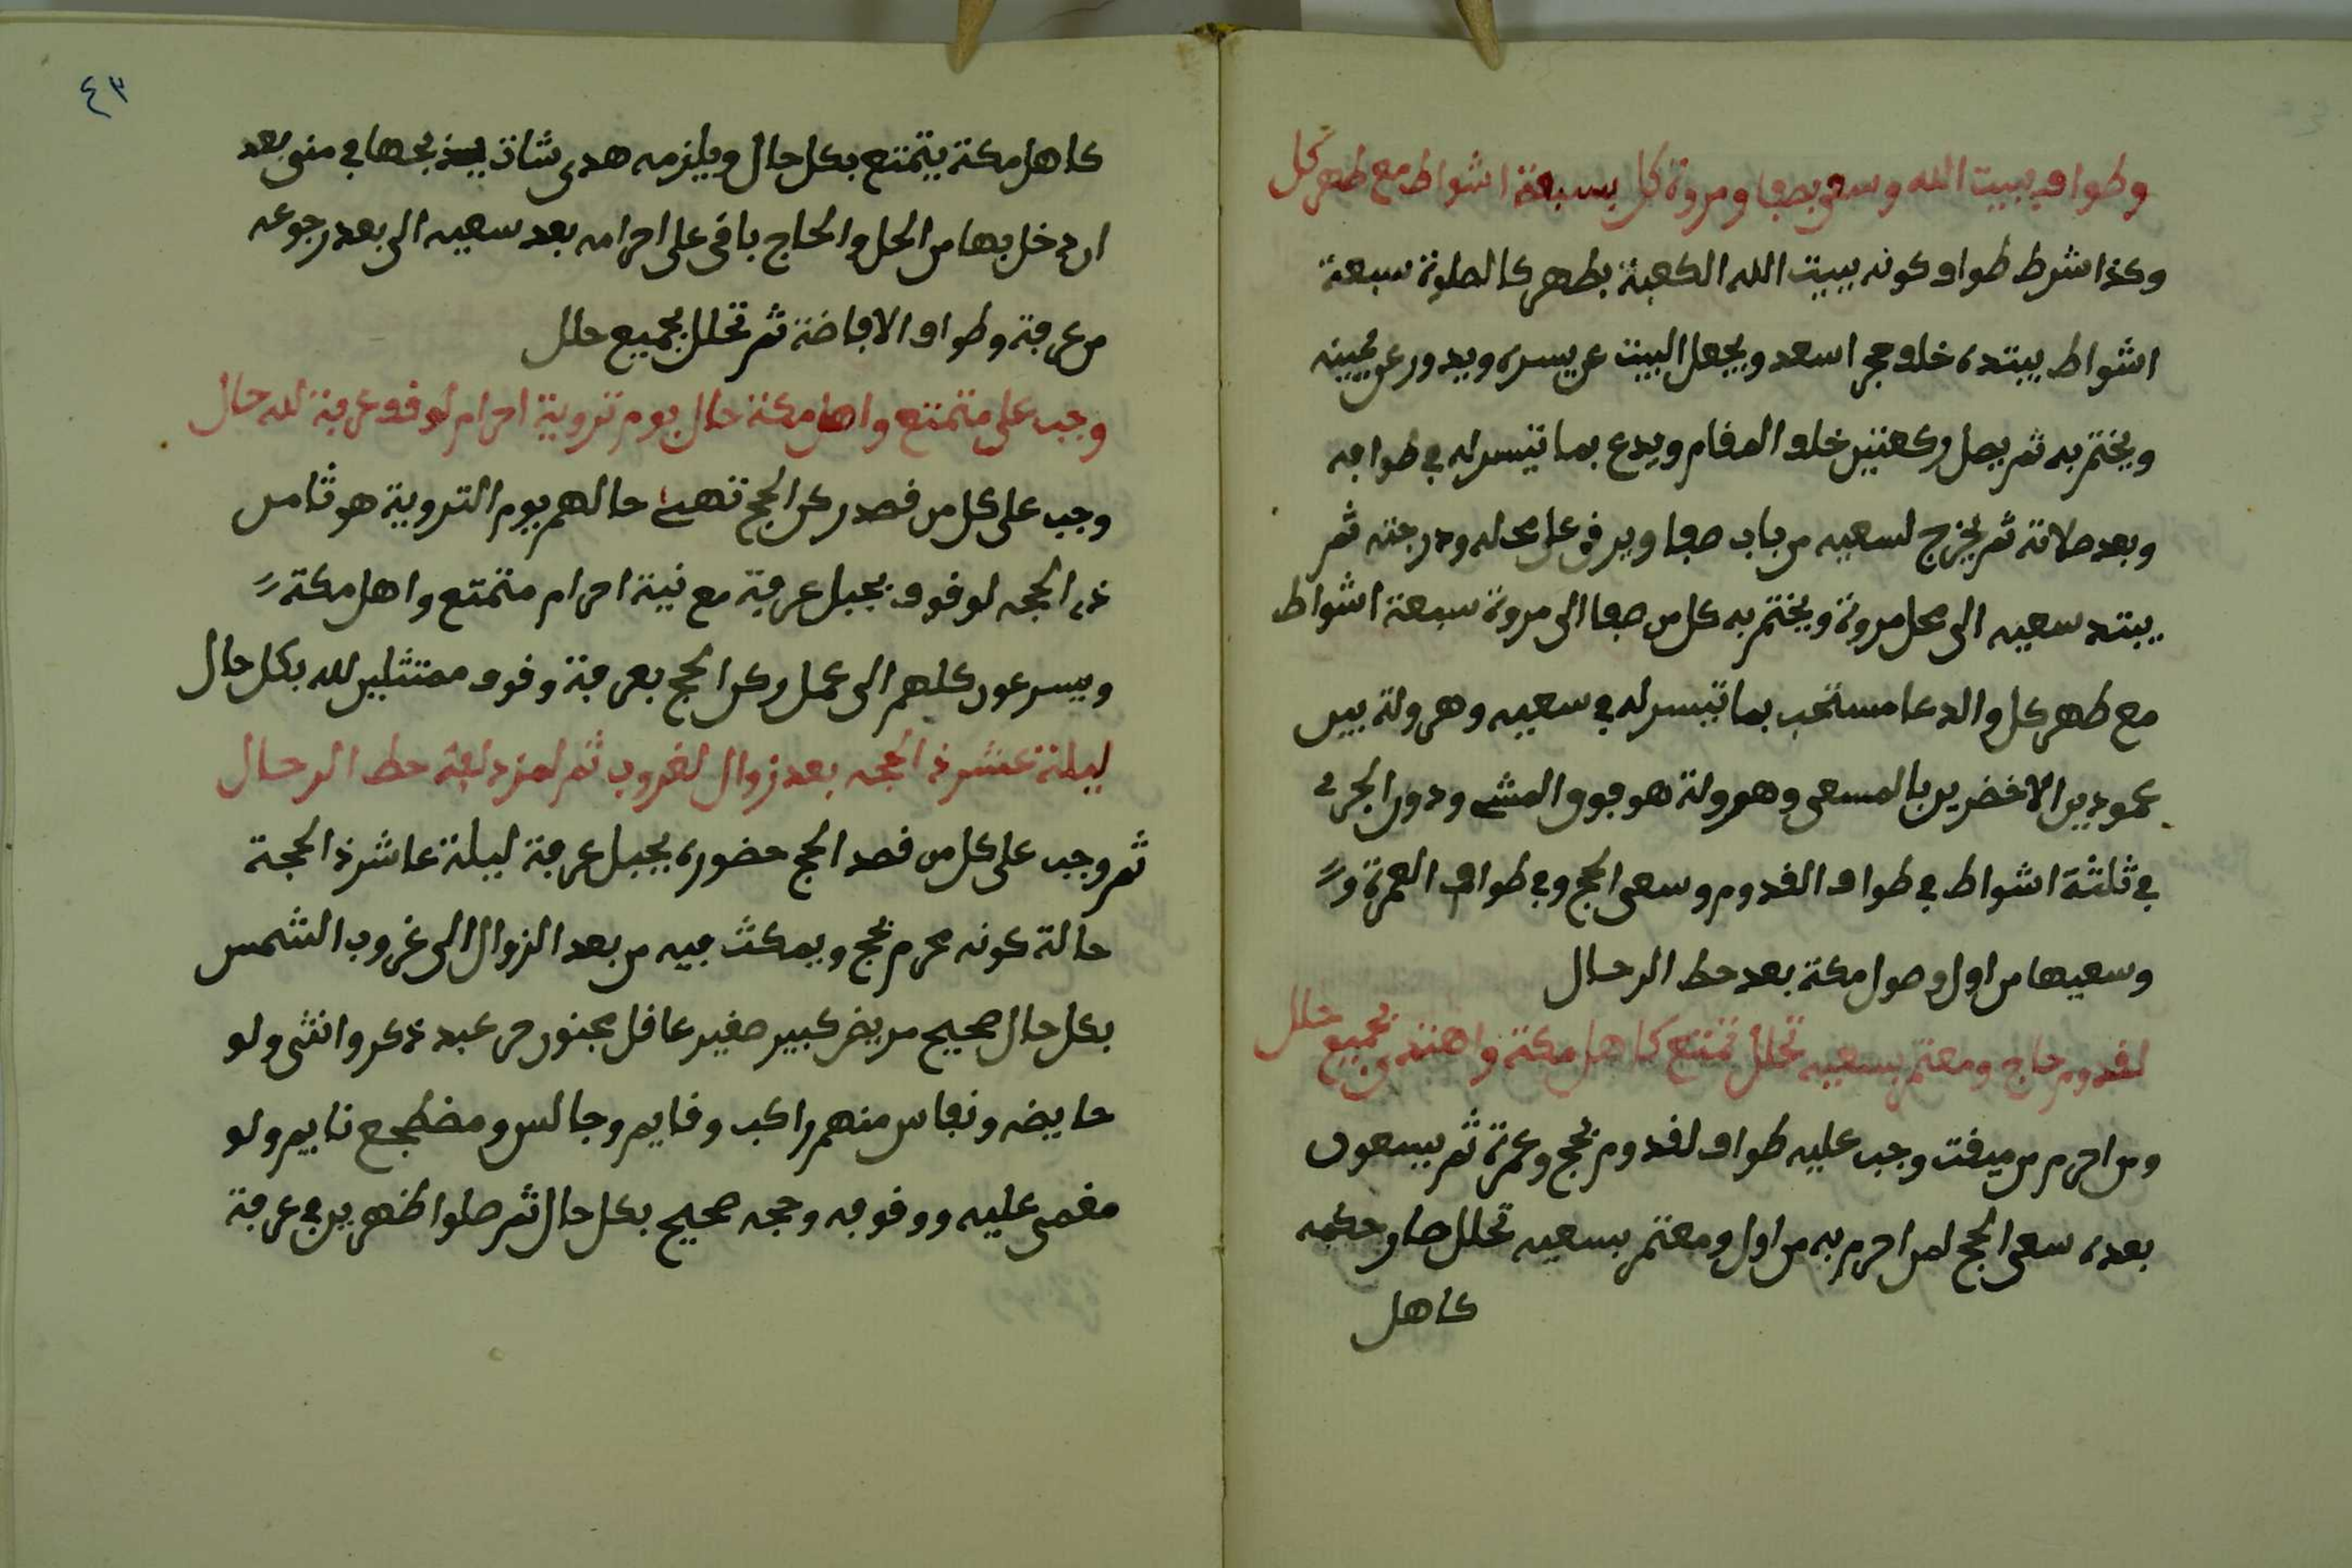 وطوافه ببيت الله وسعي بصفا ومروة كل بسبعة اشواط مع طهر كل
وكذا شرط طواف كونه ببيت الله الكعبة بطهر كالصلوة سبعة
اشواط يبتده خلف حجر اسعد ويجعل البيت عن يسره ويدور عن يمينه
ويختم به ثم يصل ركعتين خلف المقام ويدع بما تيسر له في طوافه
وبعد صلاته ثم يخرج لسعيه من باب صفا ويرقى على محله ودرجته ثم
يبتد سعيه الى محل مروة ويختم به كل من صفا الى مروة سبعة اشواط
مع طهر كل والدعا مستحب بما تيسر له في سعيه وهرولة بين
عمودين الاخضرين بالمسعى وهرولة هو فوق المشي ودون الجرى
في ثلثة اشواط في طواف القدوم وسعى الحج وفي طواف العمرة و
وسعيها من اول وصول مكة بعد حط الرحال
لقدوم حاج ومعتمر بسعيه تحلل تمتع كاهل مكة واهتدى بجميع حلل
ومن احرم من ميقت وجب عليه طواف لقدوم بحج وعمرة ثم يسعون
بعده سعى الحج لمن احرم به من اول ومعتمر بسعيه تحلل صار حكمه
كاهل
٤٣
كاهل مكة يتمتع بكل حال ويلزمه هدى شاة يذبحها في منى بعد
ان دخل بها من الحل والحاج باقى على احرامه بعد سعيه الى بعد رجوعه
من عرفة وطواف الافاضة ثم تحلل بجميع حلل
وجب على متمتع واهل مكة حال يوم تروية احرام لوقوف عرفة لله حال
وجب على كل من قصد ركن الحج تهيئ حالهم يوم التروية هو ثامن
ذى الحجه لوقوف بجبل عرفة مع نية احرام متمتع واهل مكة
ويسرعون كلهم الى عمل ركن الحج بعرفة وقوف ممتثلين لله بكل حال
ليلة عشر ذا الحجه بعد زوال لغروب ثم لمزدلفة حط الرحال
ثم وجب على كل من قصد الحج حضوره بجبل عرفة ليلة عاشر ذا الحجة
حالة كونه محرم بحج ويمكث فيه من بعد الزوال الى غروب الشمس
بكل حال صحيح مريض كبير صغير عاقل مجنون حر عبد ذكر وانثى ولو
حايض ونفاس منهم راكب وقايم وجالس ومضطجع نايم ولو
مغمى عليه ووقوفه وحجه صحيح بكل حال ثم صلوا ظهرين في عرفة